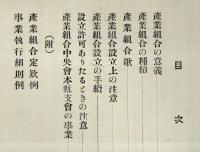 目次
產業組合の意義
產業組合の種類
產業組合歌
產業組合設立上の注意
產業組合設立の手續
設立許可ありたるときの注意
產業組合中央會本縣支會の事業
(附)
產業組合定款例
事業執行細則例